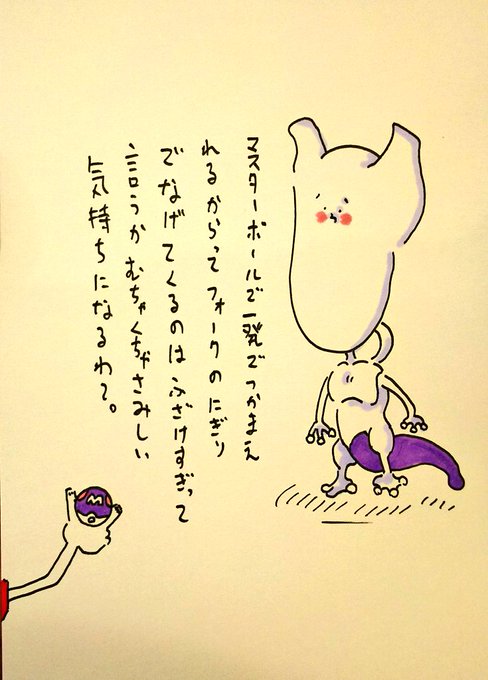 マスターボールで一発でつかまえ
れるからってフォークのにぎり
でなげてくるのはふざけすぎって
言うかむちゃくちゃさみしい
気持ちになるわて。
M